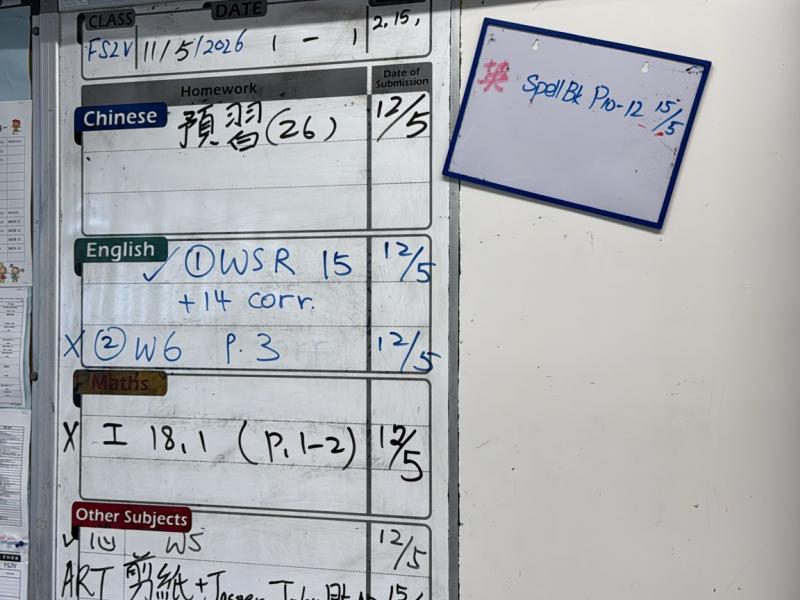 CLASS DATE
FS2V 11/5/2026 1 - 1 2, 15,
Homework Date of Submission
Chinese 預習(26) 12/5
English ✓ ①WSR 15 12/5
+14 corr.
X ②W6 P.3 12/5
Maths
X I 18.1 (P.1-2) 12/5
Other Subjects
✓ W5 12/5
ART 剪紙+ 15/
英 SpellBk P10-12 15/5
FS2V